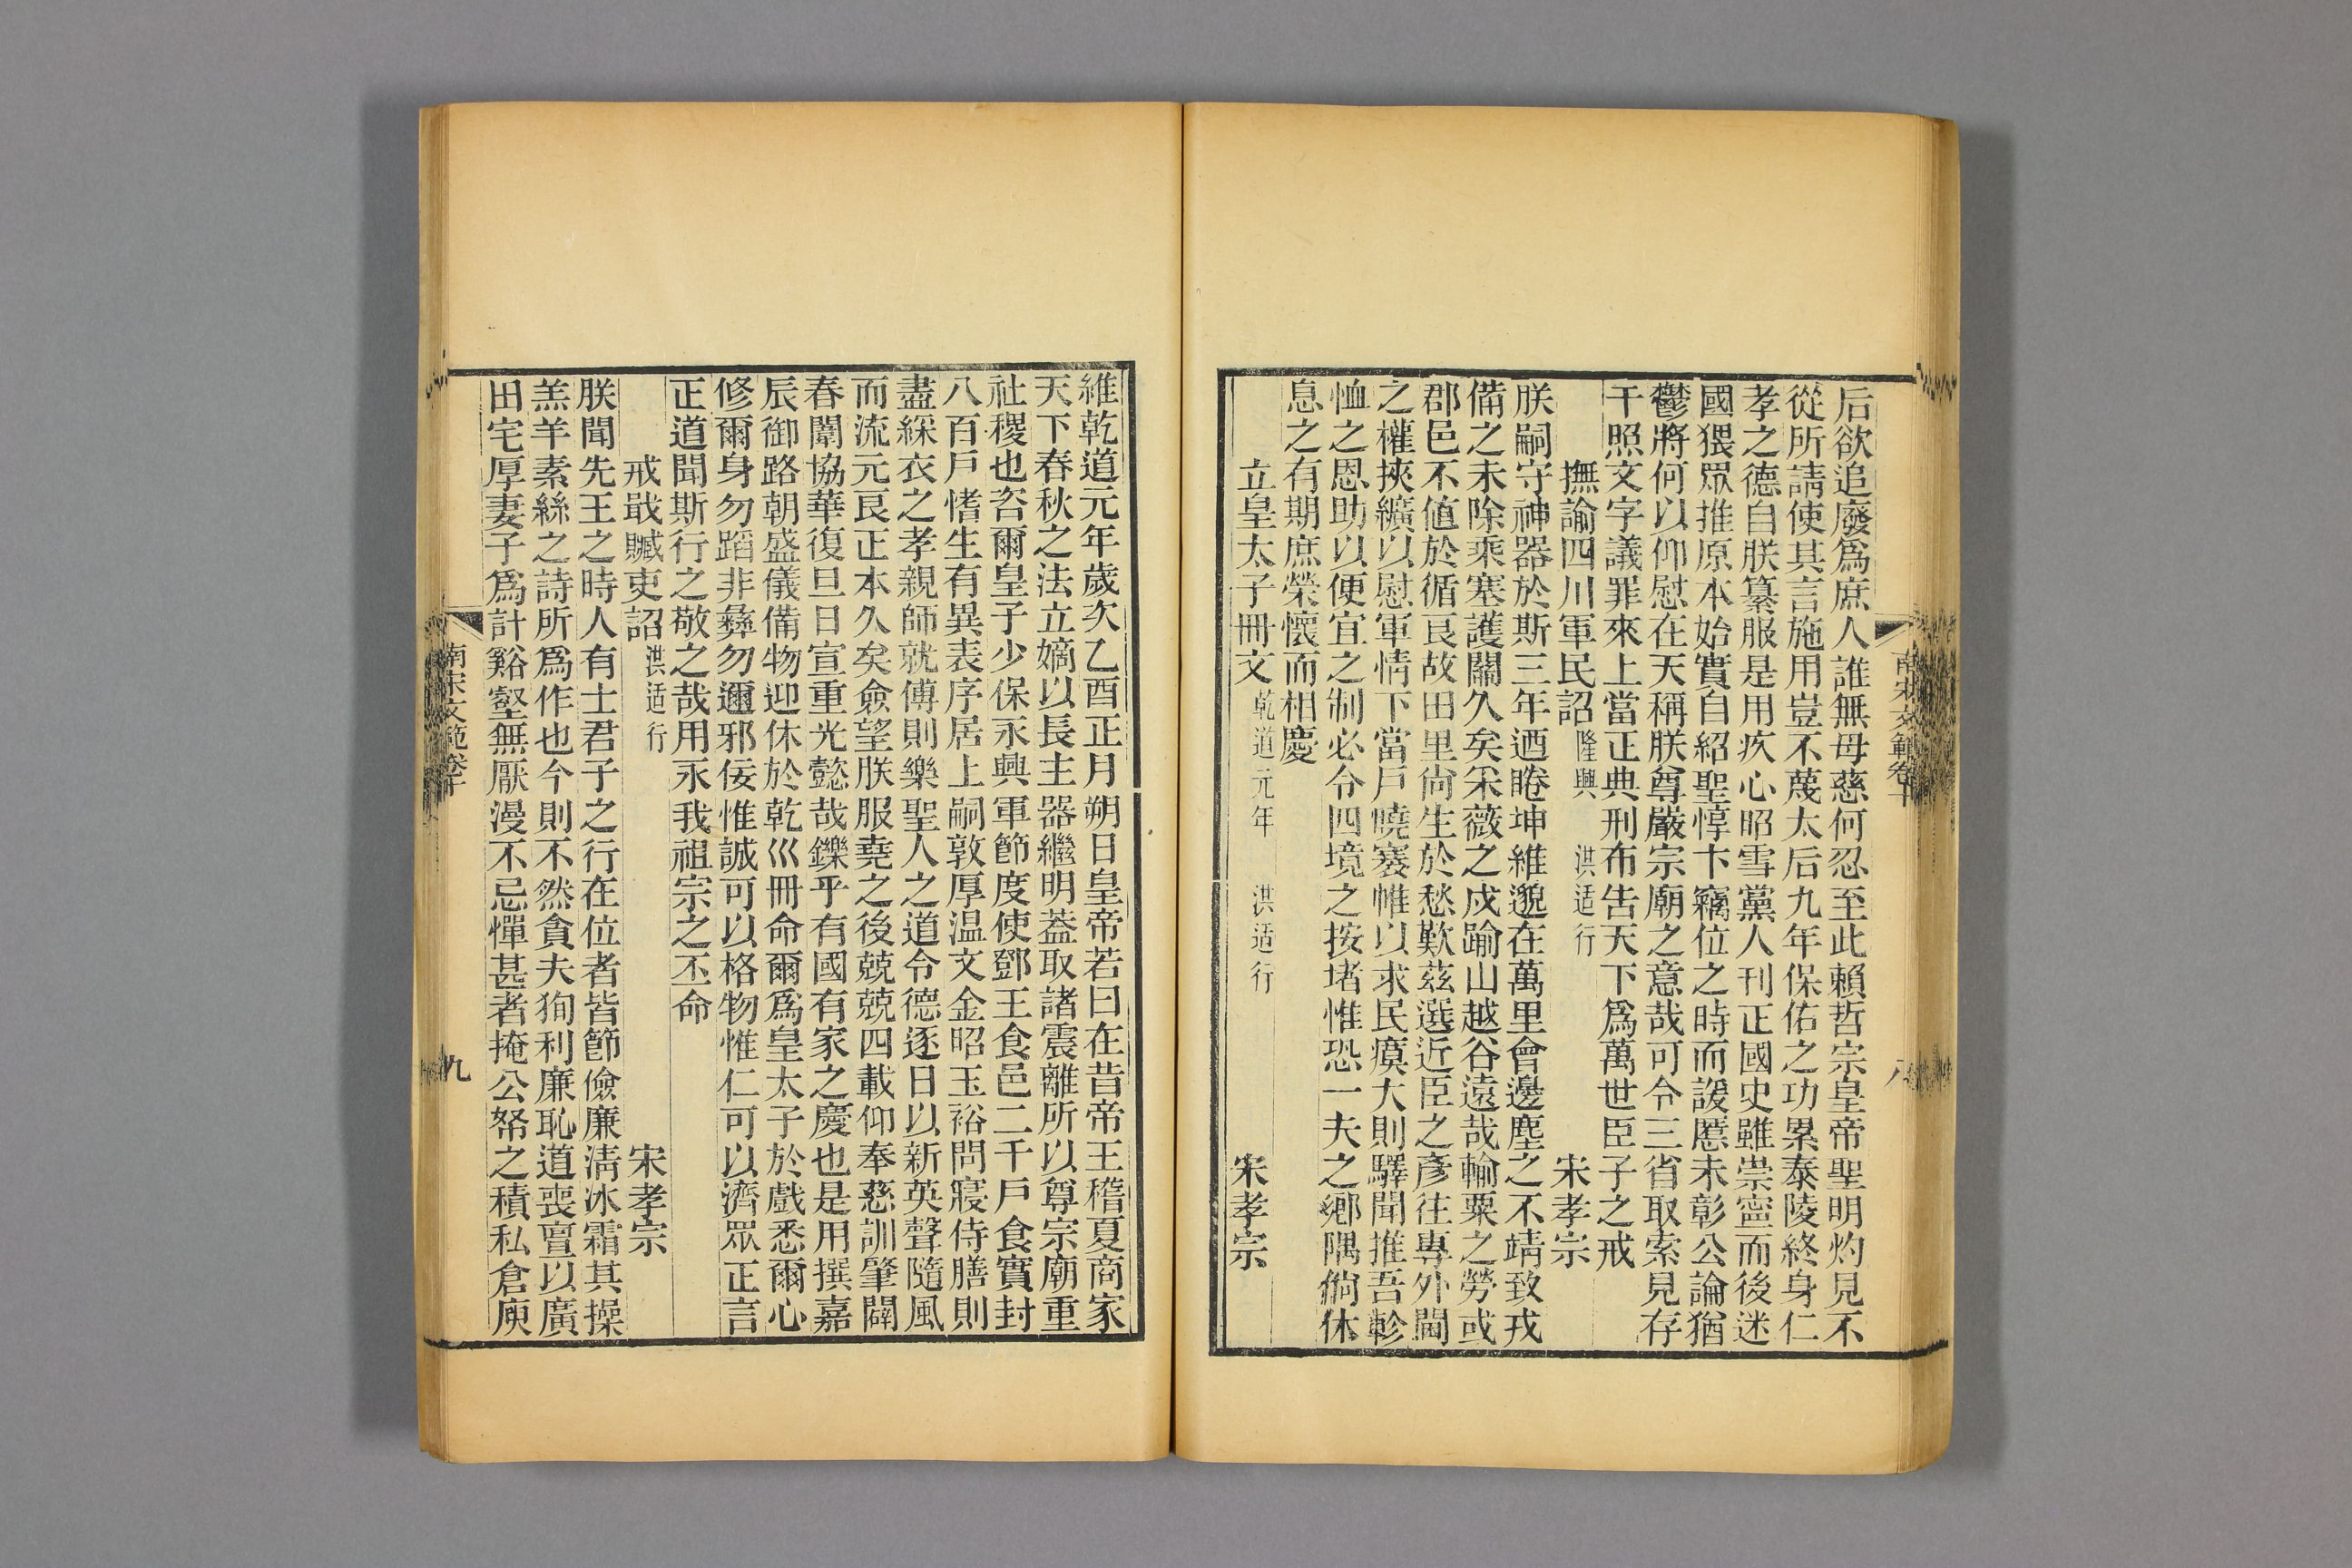 后欲追廢爲庶人誰無母慈何忍至此賴哲宗皇帝聖明灼見不
從所請使其言施用豈不蔑太后九年保佑之功累泰陵終身仁
孝之德自朕纂服是用疚心昭雪黨人刊正國史雖崇寧而後迷
國猥眾推原本始實自紹聖惇卞竊位之時而諼慝未彰公論猶
鬱將何以仰慰在天稱朕尊嚴宗廟之意哉可令三省取索見存
干照文字議罪來上當正典刑布告天下爲萬世臣子之戒
撫諭四川軍民詔 隆興 洪适行 宋孝宗
朕嗣守神器於斯三年迺睠坤維邈在萬里會邊塵之不靖致戎
備之未除乘塞護關久矣采薇之戍踰山越谷遠哉輸粟之勞或
郡邑不値於循良故田里尙生於愁歎茲選近臣之彥往專外閫
之權挾纊以慰軍情下當戶曉褰帷以求民瘼大則驛聞推吾軫
恤之恩助以便宜之制必令四境之按堵惟恐一夫之鄉隅倘休
息之有期庶榮懷而相慶
立皇太子冊文 乾道元年 洪适行 宋孝宗
維乾道元年歲次乙酉正月朔日皇帝若曰在昔帝王稽夏商家
天下春秋之法立嫡以長主器繼明蓋取諸震離所以尊宗廟重
社稷也咨爾皇子少保永興軍節度使鄧王食邑二千戶食實封
八百戶愭生有異表序居上嗣敦厚温文金昭玉裕問寢侍膳則
盡綵衣之孝親師就傅則樂聖人之道令德逐日以新英聲隨風
而流元良正本久矣僉望朕服堯之後兢兢四載仰奉慈訓肇闢
春闈協華復旦日宣重光懿哉鑠乎有國有家之慶也是用撰嘉
辰御路朝盛儀備物迎休於乾巛冊命爾爲皇太子於戲悉爾心
修爾身勿蹈非彝勿邇邪佞惟誠可以格物惟仁可以濟眾正言
正道聞斯行之敬之哉用永我祖宗之丕命
戒戢贓吏詔 洪适行 宋孝宗
朕聞先王之時人有士君子之行在位者皆節儉廉淸冰霜其操
羔羊素絲之詩所爲作也今則不然貪夫狥利廉恥道喪亶以廣
田宅厚妻子爲計谿壑無厭漫不忌憚甚者掩公帑之積私倉庾
南宋文範卷十 八
南宋文範卷十 九